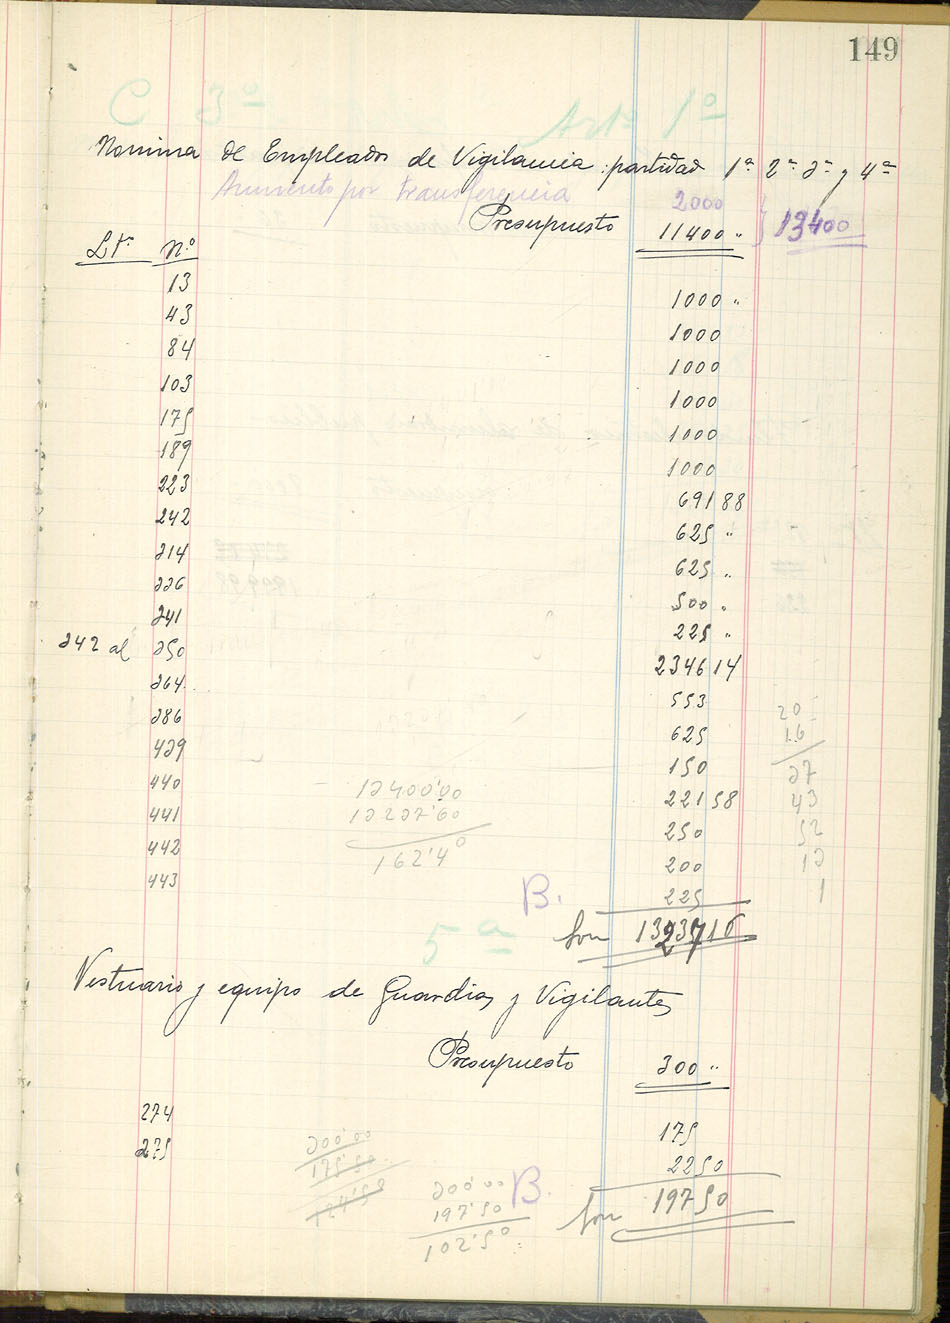 149
C 3º Artº 1º
Nomina de Empleados de Vigilancia partidas 1ª 2ª 3ª y 4ª
Aumento por transferencia 2000
Presupuesto 11400 " } 13400
Nº
13 1000 "
43 1000
84 1000
103 1000
175 1000
189 1000
223 691 88
242 625 "
314 625 "
336 500 "
341 225 "
342 al 350 2346 14
364 553
386 625
20
16
439 150
37
440 221 58
43
13400'00
441 250
52
13237'60
442 200
13
162'40
443 225
1
B. Son 13237 16
5ª
Vestuario y equipo de Guardias y Vigilantes
Presupuesto 300 "
274 175
275 22 50
300'00
175'50
124'50
B. Son 197 50
300'00
197'50
102'50